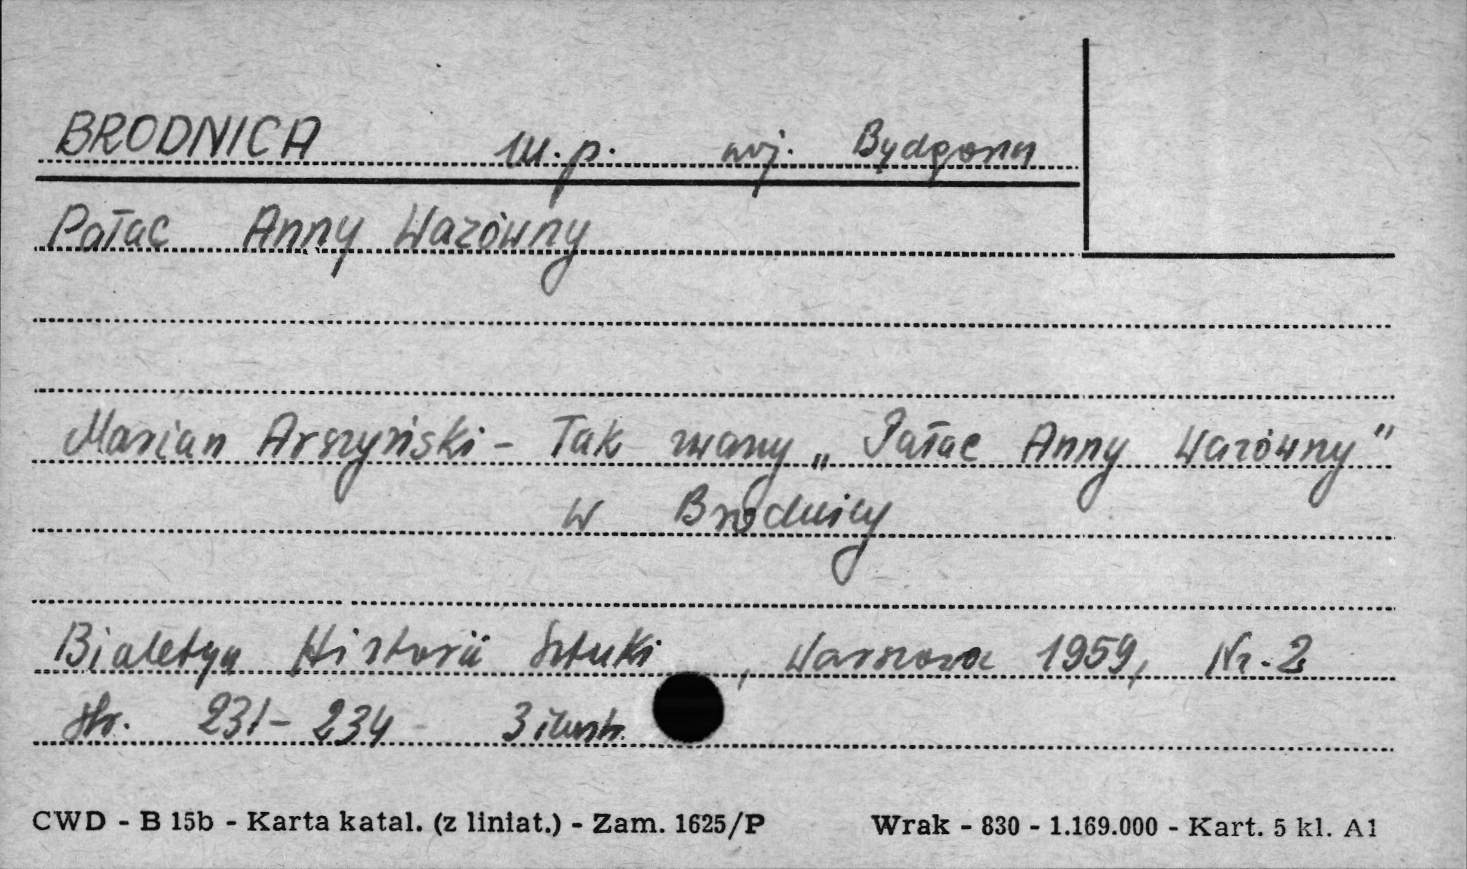 BRODNICA m.p. woj. Bydgoszcz
Pałac Anny Wazówny
Marian Arszyński - Tak zwany „Pałac Anny Wazówny"
w Brodnicy
Biuletyn Historii Sztuki, Warszawa 1959, Nr. 2
str. 231-234 - 3 ilustr.
CWD - B 15b - Karta katal. (z liniat.) - Zam. 1625/P Wrak - 830 - 1.169.000 - Kart. 5 kl. A1